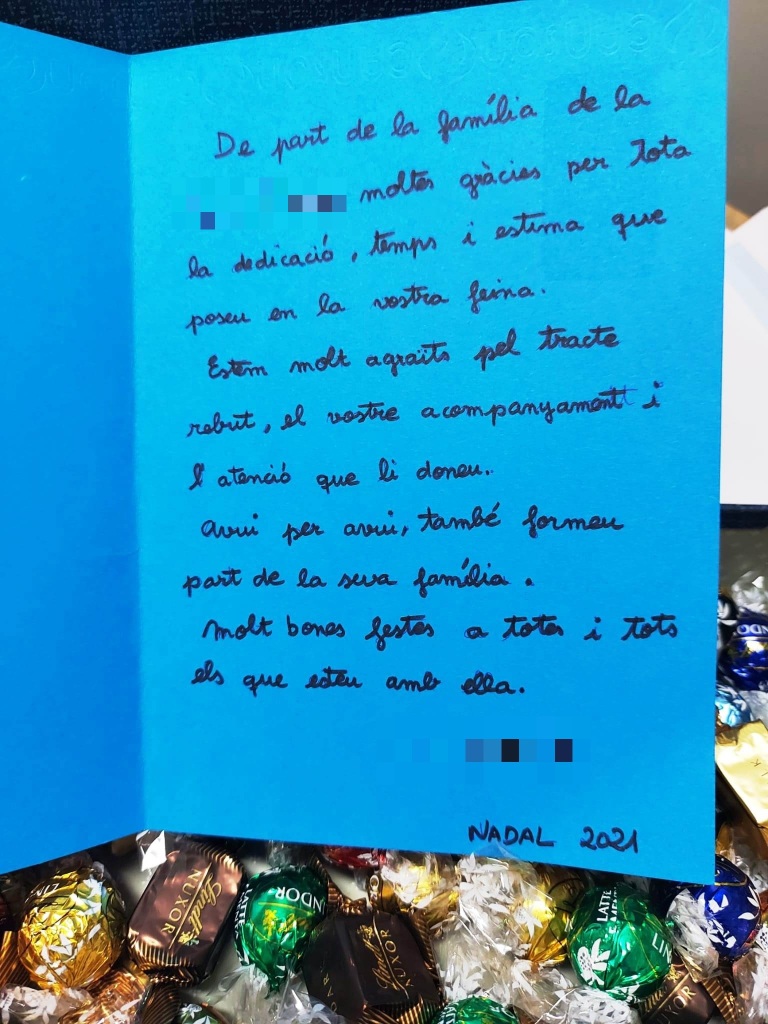 De part de la família de la
moltes gràcies per tota
la dedicació, temps i estima que
poseu en la vostra feina.
Estem molt agraïts pel tracte
rebut, el vostre acompanyament i
l'atenció que li doneu.
Avui per avui, també formeu
part de la seva família.
Molt bones festes a totes i tots
els que esteu amb ella.
NADAL 2021
Lindt
NUXOR
LATTE
NDOR
Lindt
NUXOR
LATTE
LIN
NDOR